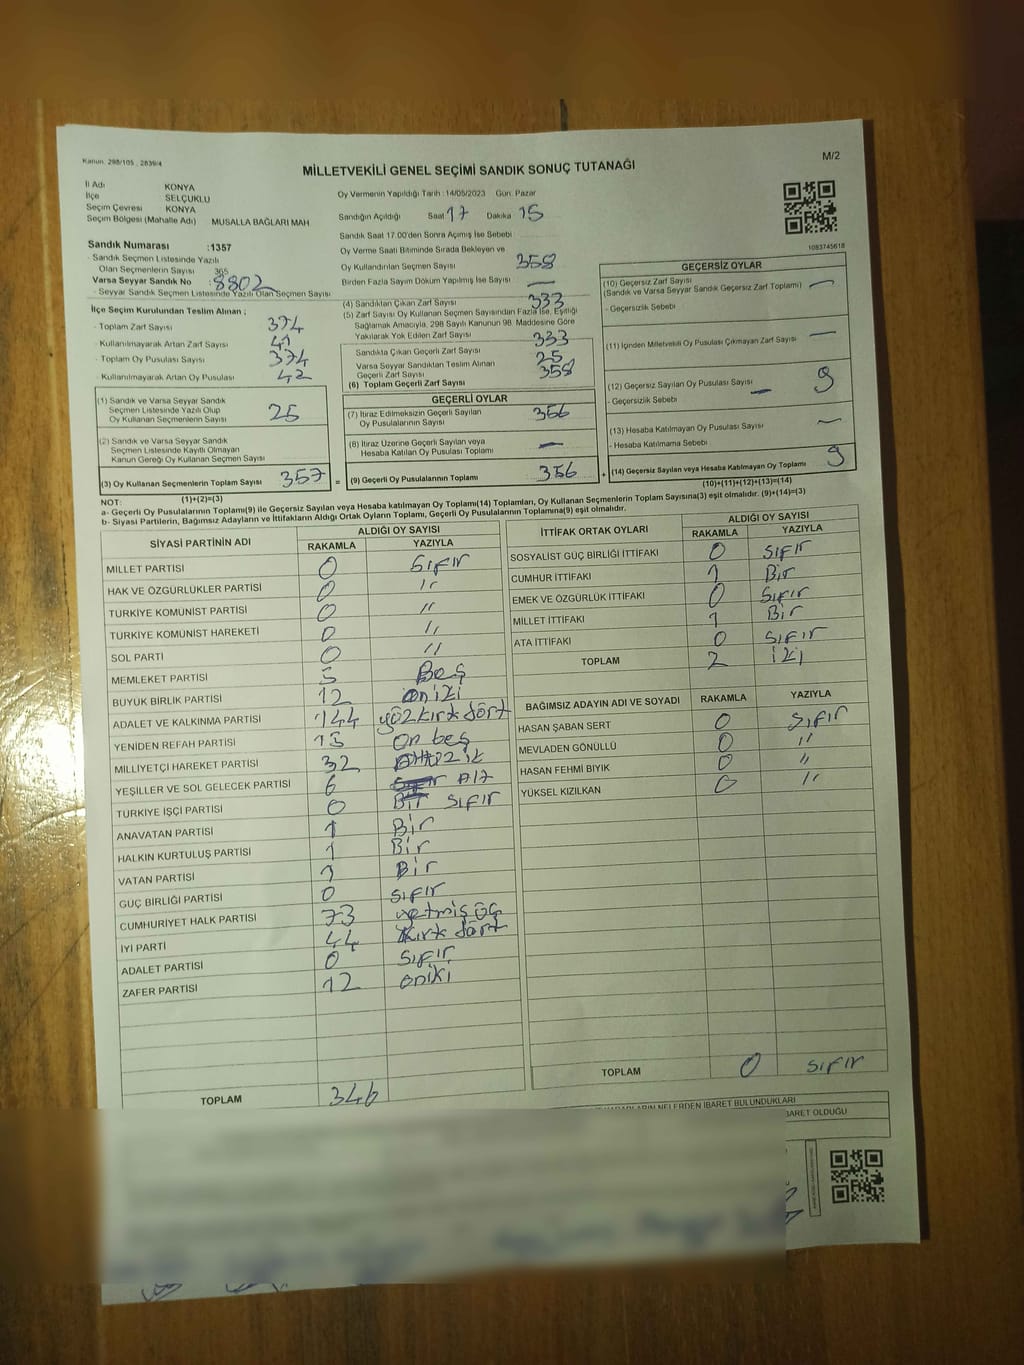 Kanun. 298/105 , 2839/4
M/2
MİLLETVEKİLİ GENEL SEÇİMİ SANDIK SONUÇ TUTANAĞI
İl Adı KONYA
İlçe SELÇUKLU
Seçim Çevresi KONYA
Seçim Bölgesi (Mahalle Adı) MUSALLA BAĞLARI MAH
Sandık Numarası :1357
- Sandık Seçmen Listesinde Yazılı
Olan Seçmenlerin Sayısı 365
Varsa Seyyar Sandık No : 8802
- Seyyar Sandık Seçmen Listesinde Yazılı Olan Seçmen Sayısı
İlçe Seçim Kurulundan Teslim Alınan ;
- Toplam Zarf Sayısı 374
- Kullanılmayarak Artan Zarf Sayısı 41
- Toplam Oy Pusulası Sayısı 374
- Kullanılmayarak Artan Oy Pusulası 42
(1) Sandık ve Varsa Seyyar Sandık
Seçmen Listesinde Yazılı Olup
Oy Kullanan Seçmenlerin Sayısı 25
(2) Sandık ve Varsa Seyyar Sandık
Seçmen Listesinde Kayıtlı Olmayan
Kanun Gereği Oy Kullanan Seçmen Sayısı
(3) Oy Kullanan Seçmenlerin Toplam Sayısı 357 =
Oy Vermenin Yapıldığı Tarih : 14/05/2023 Gün: Pazar
Sandığın Açıldığı Saat 17 Dakika 15
Sandık Saat 17.00'den Sonra Açılmış İse Sebebi
Oy Verme Saati Bitiminde Sırada Bekleyen ve
Oy Kullandırılan Seçmen Sayısı 358
Birden Fazla Sayım Döküm Yapılmış İse Sayısı —
(4) Sandıktan Çıkan Zarf Sayısı 333
(5) Zarf Sayısı Oy Kullanan Seçmen Sayısından Fazla İse, Eşitliği
Sağlamak Amacıyla, 298 Sayılı Kanunun 98. Maddesine Göre
Yakılarak Yok Edilen Zarf Sayısı 333
Sandıkta Çıkan Geçerli Zarf Sayısı 25
Varsa Seyyar Sandıktan Teslim Alınan
Geçerli Zarf Sayısı 358
(6) Toplam Geçerli Zarf Sayısı
GEÇERLİ OYLAR
(7) İtiraz Edilmeksizin Geçerli Sayılan
Oy Pusulalarının Sayısı 356
(8) İtiraz Üzerine Geçerli Sayılan veya
Hesaba Katılan Oy Pusulası Toplamı —
(9) Geçerli Oy Pusulalarının Toplamı 356 +
1083745618
GEÇERSİZ OYLAR
(10) Geçersiz Zarf Sayısı
(Sandık ve Varsa Seyyar Sandık Geçersiz Zarf Toplamı) —
- Geçersizlik Sebebi
(11) İçinden Milletvekili Oy Pusulası Çıkmayan Zarf Sayısı —
(12) Geçersiz Sayılan Oy Pusulası Sayısı 9
- Geçersizlik Sebebi —
(13) Hesaba Katılmayan Oy Pusulası Sayısı —
- Hesaba Katılmama Sebebi
(14) Geçersiz Sayılan veya Hesaba Katılmayan Oy Toplamı 9
(10)+(11)+(12)+(13)=(14)
NOT: (1)+(2)=(3)
a- Geçerli Oy Pusulalarının Toplamı(9) ile Geçersiz Sayılan veya Hesaba katılmayan Oy Toplamı(14) Toplamları, Oy Kullanan Seçmenlerin Toplam Sayısına(3) eşit olmalıdır. (9)+(14)=(3)
b- Siyasi Partilerin, Bağımsız Adayların ve İttifakların Aldığı Ortak Oyların Toplamı, Geçerli Oy Pusulalarının Toplamına(9) eşit olmalıdır.
SİYASİ PARTİNİN ADI ALDIĞI OY SAYISI
RAKAMLA YAZIYLA
MİLLET PARTİSİ 0 Sıfır
HAK VE ÖZGÜRLÜKLER PARTİSİ 0 "
TÜRKİYE KOMÜNİST PARTİSİ 0 "
TÜRKİYE KOMÜNİST HAREKETİ 0 "
SOL PARTİ 0 "
MEMLEKET PARTİSİ 5 Beş
BÜYÜK BİRLİK PARTİSİ 12 oniki
ADALET VE KALKINMA PARTİSİ 144 yüzkırk dört
YENİDEN REFAH PARTİSİ 15 On beş
MİLLİYETÇİ HAREKET PARTİSİ 32
YEŞİLLER VE SOL GELECEK PARTİSİ 6 Altı
TÜRKİYE İŞÇİ PARTİSİ 0 Bir sıfır
ANAVATAN PARTİSİ 1 Bir
HALKIN KURTULUŞ PARTİSİ 1 Bir
VATAN PARTİSİ 1 Bir
GÜÇ BİRLİĞİ PARTİSİ 0 sıfır
CUMHURİYET HALK PARTİSİ 73 yetmiş üç
İYİ PARTİ 44 Kırk dört
ADALET PARTİSİ 0 sıfır
ZAFER PARTİSİ 12 oniki
TOPLAM 346
İTTİFAK ORTAK OYLARI ALDIĞI OY SAYISI
RAKAMLA YAZIYLA
SOSYALİST GÜÇ BİRLİĞİ İTTİFAKI 0 sıfır
CUMHUR İTTİFAKI 1 Bir
EMEK VE ÖZGÜRLÜK İTTİFAKI 0 Sıfır
MİLLET İTTİFAKI 1 Bir
ATA İTTİFAKI 0 Sıfır
TOPLAM 2 iki
BAĞIMSIZ ADAYIN ADI VE SOYADI RAKAMLA YAZIYLA
HASAN ŞABAN SERT 0 Sıfır
MEVLADEN GÖNÜLLÜ 0 "
HASAN FEHMİ BIYIK 0 "
YÜKSEL KIZILKAN 0 "
TOPLAM 0 sıfır
NELERDEN İBARET BULUNDUKLARI
BARET OLDUĞU